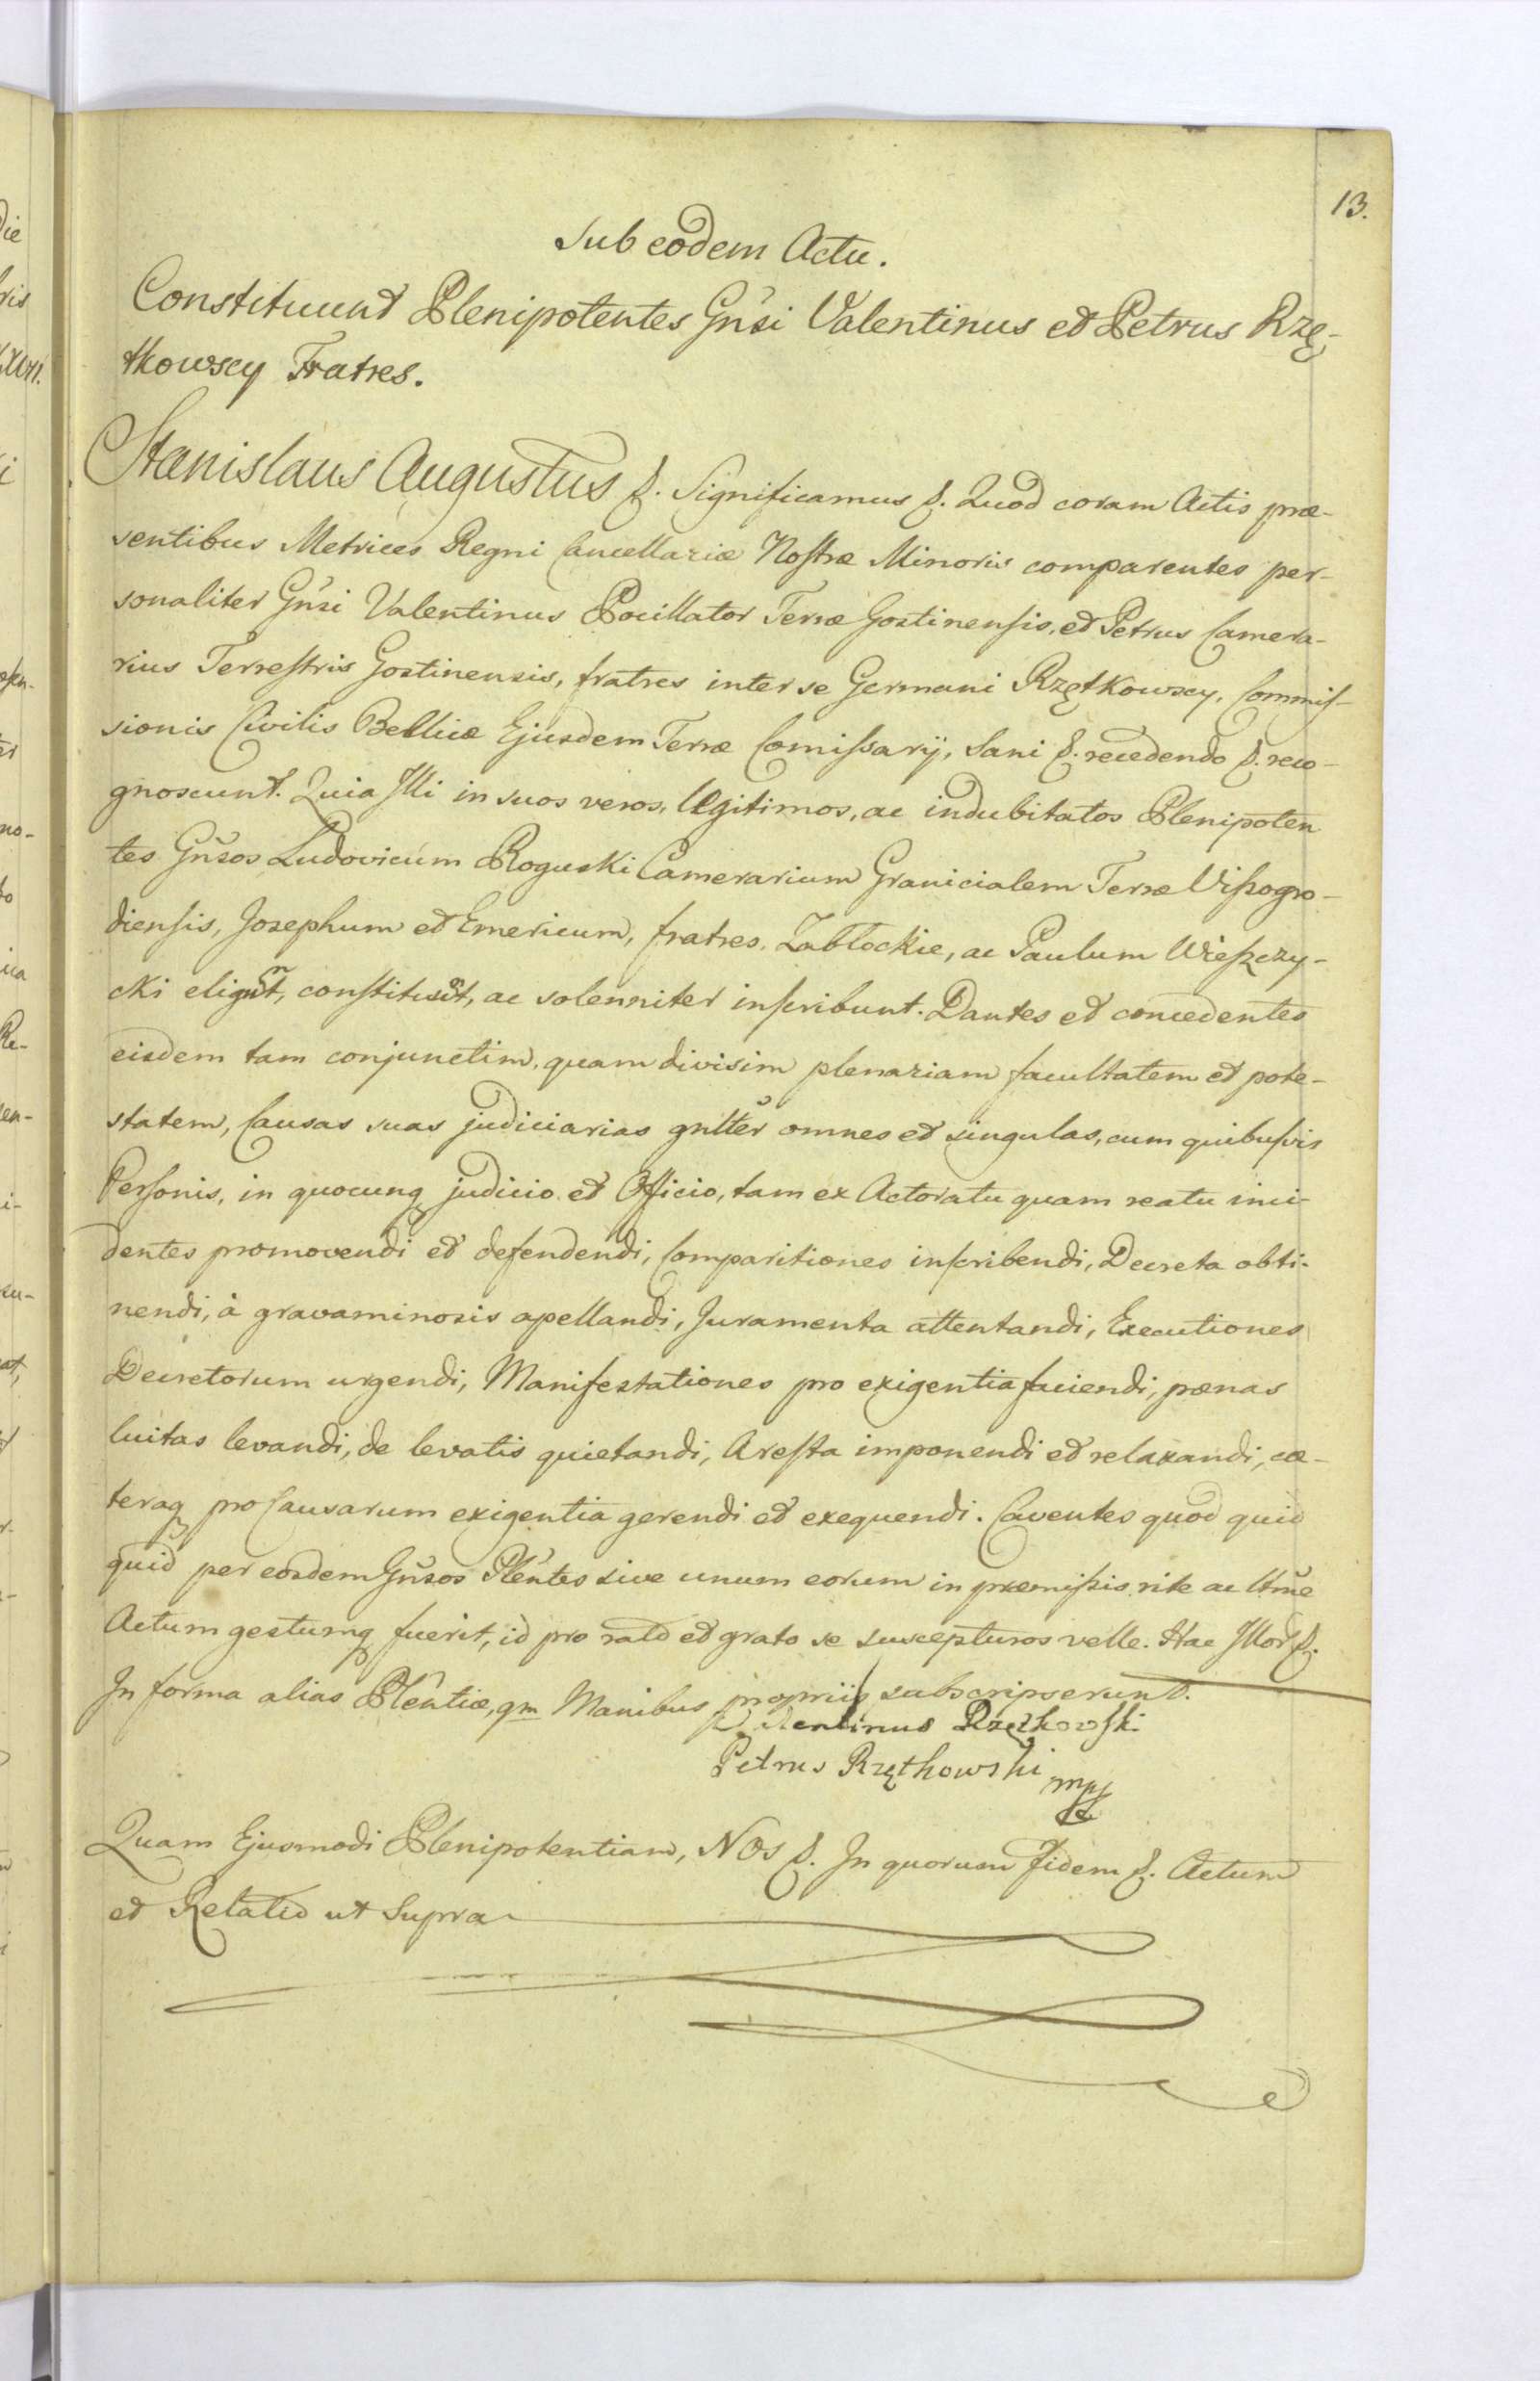 13.
Sub eodem Actu.
Constituunt Plenipotentes Gñsi Valentinus et Petrus Rzę-
tkowscy Fratres.
Stanislaus Augustus &. Significamus &. Quod coram Actis præ-
sentibus Metrices Regni Cancellariæ Nostræ Minoris comparentes per-
sonaliter Gñsi Valentinus Pocillator Terræ Gostinensis, et Petrus Camera-
rius Terrestris Gostinensis, fratres inter se Germani Rzętkowscy, Commis-
sionis Civilis Bellicæ Ejusdem Terræ Comissarij, Sani &. recedendo &. reco-
gnoscunt. Quia Illi in suos veros, legitimos, ac indubitatos Plenipoten
tes Gñsos Ludovicum Roguski Camerarium Granicialem Terræ Vissogro-
diensis, Josephum et Emericum, fratres Zabłockie, ac Paulum Wieszczy-
cki eligūt, constituūt, ac solenniter inscribunt. Dantes et concedentes
eisdem tam conjunctim, quam divisim plenariam facultatem et pote-
statem, Causas suas judiciarias gnltẽr omnes et singulas, cum quibusvis
Personis, in quocunq judicio et Officio, tam ex Actoratu quam reatu inci-
dentes promovendi et defendendi, Comparitiones inscribendi, Decreta obti-
nendi, à gravaminosis apellandi, Juramenta attentandi, Executiones
Decretorum urgendi, Manifestationes pro exigentia faciendi, pœnas
luitas levandi, de levatis quietandi, Aresta imponendi et relaxandi, cæ-
teraq pro Causarum exigentia gerendi et exequendi. Caventes quod quid
quid per eosdem Gñsos Plẽntes sive unum eorum in præmissis rite ac ltmẽ
Actum gestumq fuerit, id pro rato et grato se suscepturos velle. Hac Illor &.
In forma alias Plẽntiæ, qm Manibus propriis subscripserunt.
Valentinus Rzętkowski
Petrus Rzętkowski mp
Quam Ejusmodi Plenipotentiam, Nos &. In quorum Fidem &. Actum
et Relatio ut Supra